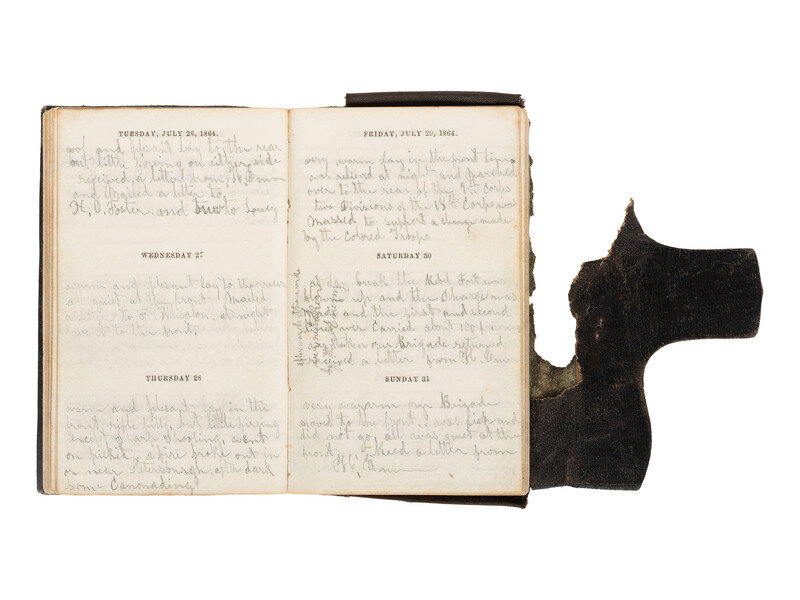 TUESDAY, JULY 26, 1864.
and plesant lay to the rear
but little firing on either side
received a letter from
and Mailed a letter to
H. Foster and two to Loucy
WEDNESDAY 27
warm and plesant lay to the rear
all quiet at the front Mailed
a letter to F. Whealon, at night
went to the front,
THURSDAY 28
warm and plesant lay in the
front rifle pitts, but little firing
except Sharp Shooting, went
on picket, a fire broke out in
or near Petersburgh, after dark
some Canonading
FRIDAY, JULY 29, 1864.
very warm day in the front line
was relieved at night and marched
over to the rear of the 9th Corps
two Divisions of the 18th Corps was
massed to support a charge made
by the Colored Troops
SATURDAY 30
day break the Rebel Fort was
up and the Charge was
made and the first and second
line over Carried about 100 prisoners
was taken our Brigade returned
received a letter from
SUNDAY 31
very waparm our Brigade
moved to the front, I was sick and
did not go, all was quiet at the
front, a letter from